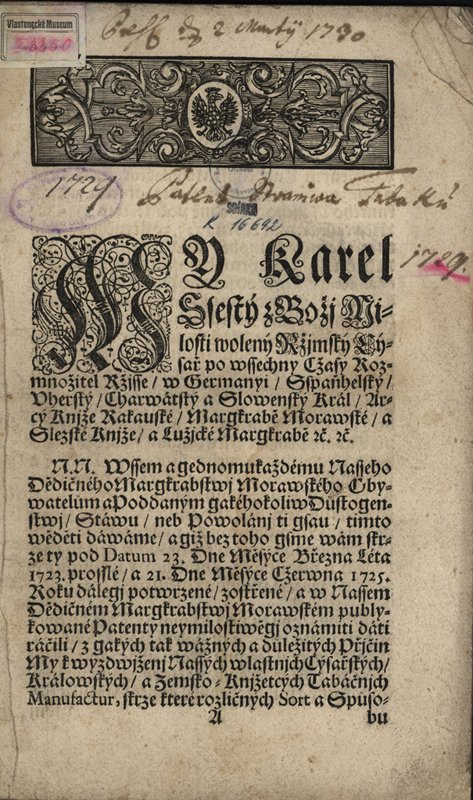 Vlastenecké Museum
1729
Patent Straniwa Tabáků
K 16692
1729
MY Karel
Ssestý z Božj Mi-
losti wolený Ržjmský Cý-
sař po wssechny Cžasy Roz-
množitel Ržjsse / w Germanyi / Sspaňhelský /
Vherský / Charwátský a Slowenský Král / Ar-
cy Knjže Rakauské / Margkrabě Morawské / a
Slezské Knjže / a Lužjcké Margkrabě ꝛc. ꝛc.
N.N. Wssem a gednomukaždému Nasseho
Dědičného Margkrabstwj Morawského Oby-
watelům a Poddaným gakéhokoliw Důstogen-
stwj / Stáwu / neb Powolánj ti gsau / timto
wěděti dáwáme / a giž bez toho gsme wám skr-
ze ty pod Datum 23. Dne Měsýce Března Léta
1723. prosslé / a 21. Dne Měsýce Cžerwna 1725.
Roku dálegj potwrzené / zostřené / a w Nassem
Dědičném Margkrabstwj Morawském publy-
kowané Patenty neymilostiwěgj oznámiti dáti
ráčili / z gakých tak wážných a důležitých Přjčin
My k wyzdwjženj Nassých wlastnjch Cýsařských /
Králowských / a Zemsko-Knjžetcých Tabáčnjch
Manufactur, skrze které rozličných Sort a Spůso-
A bu